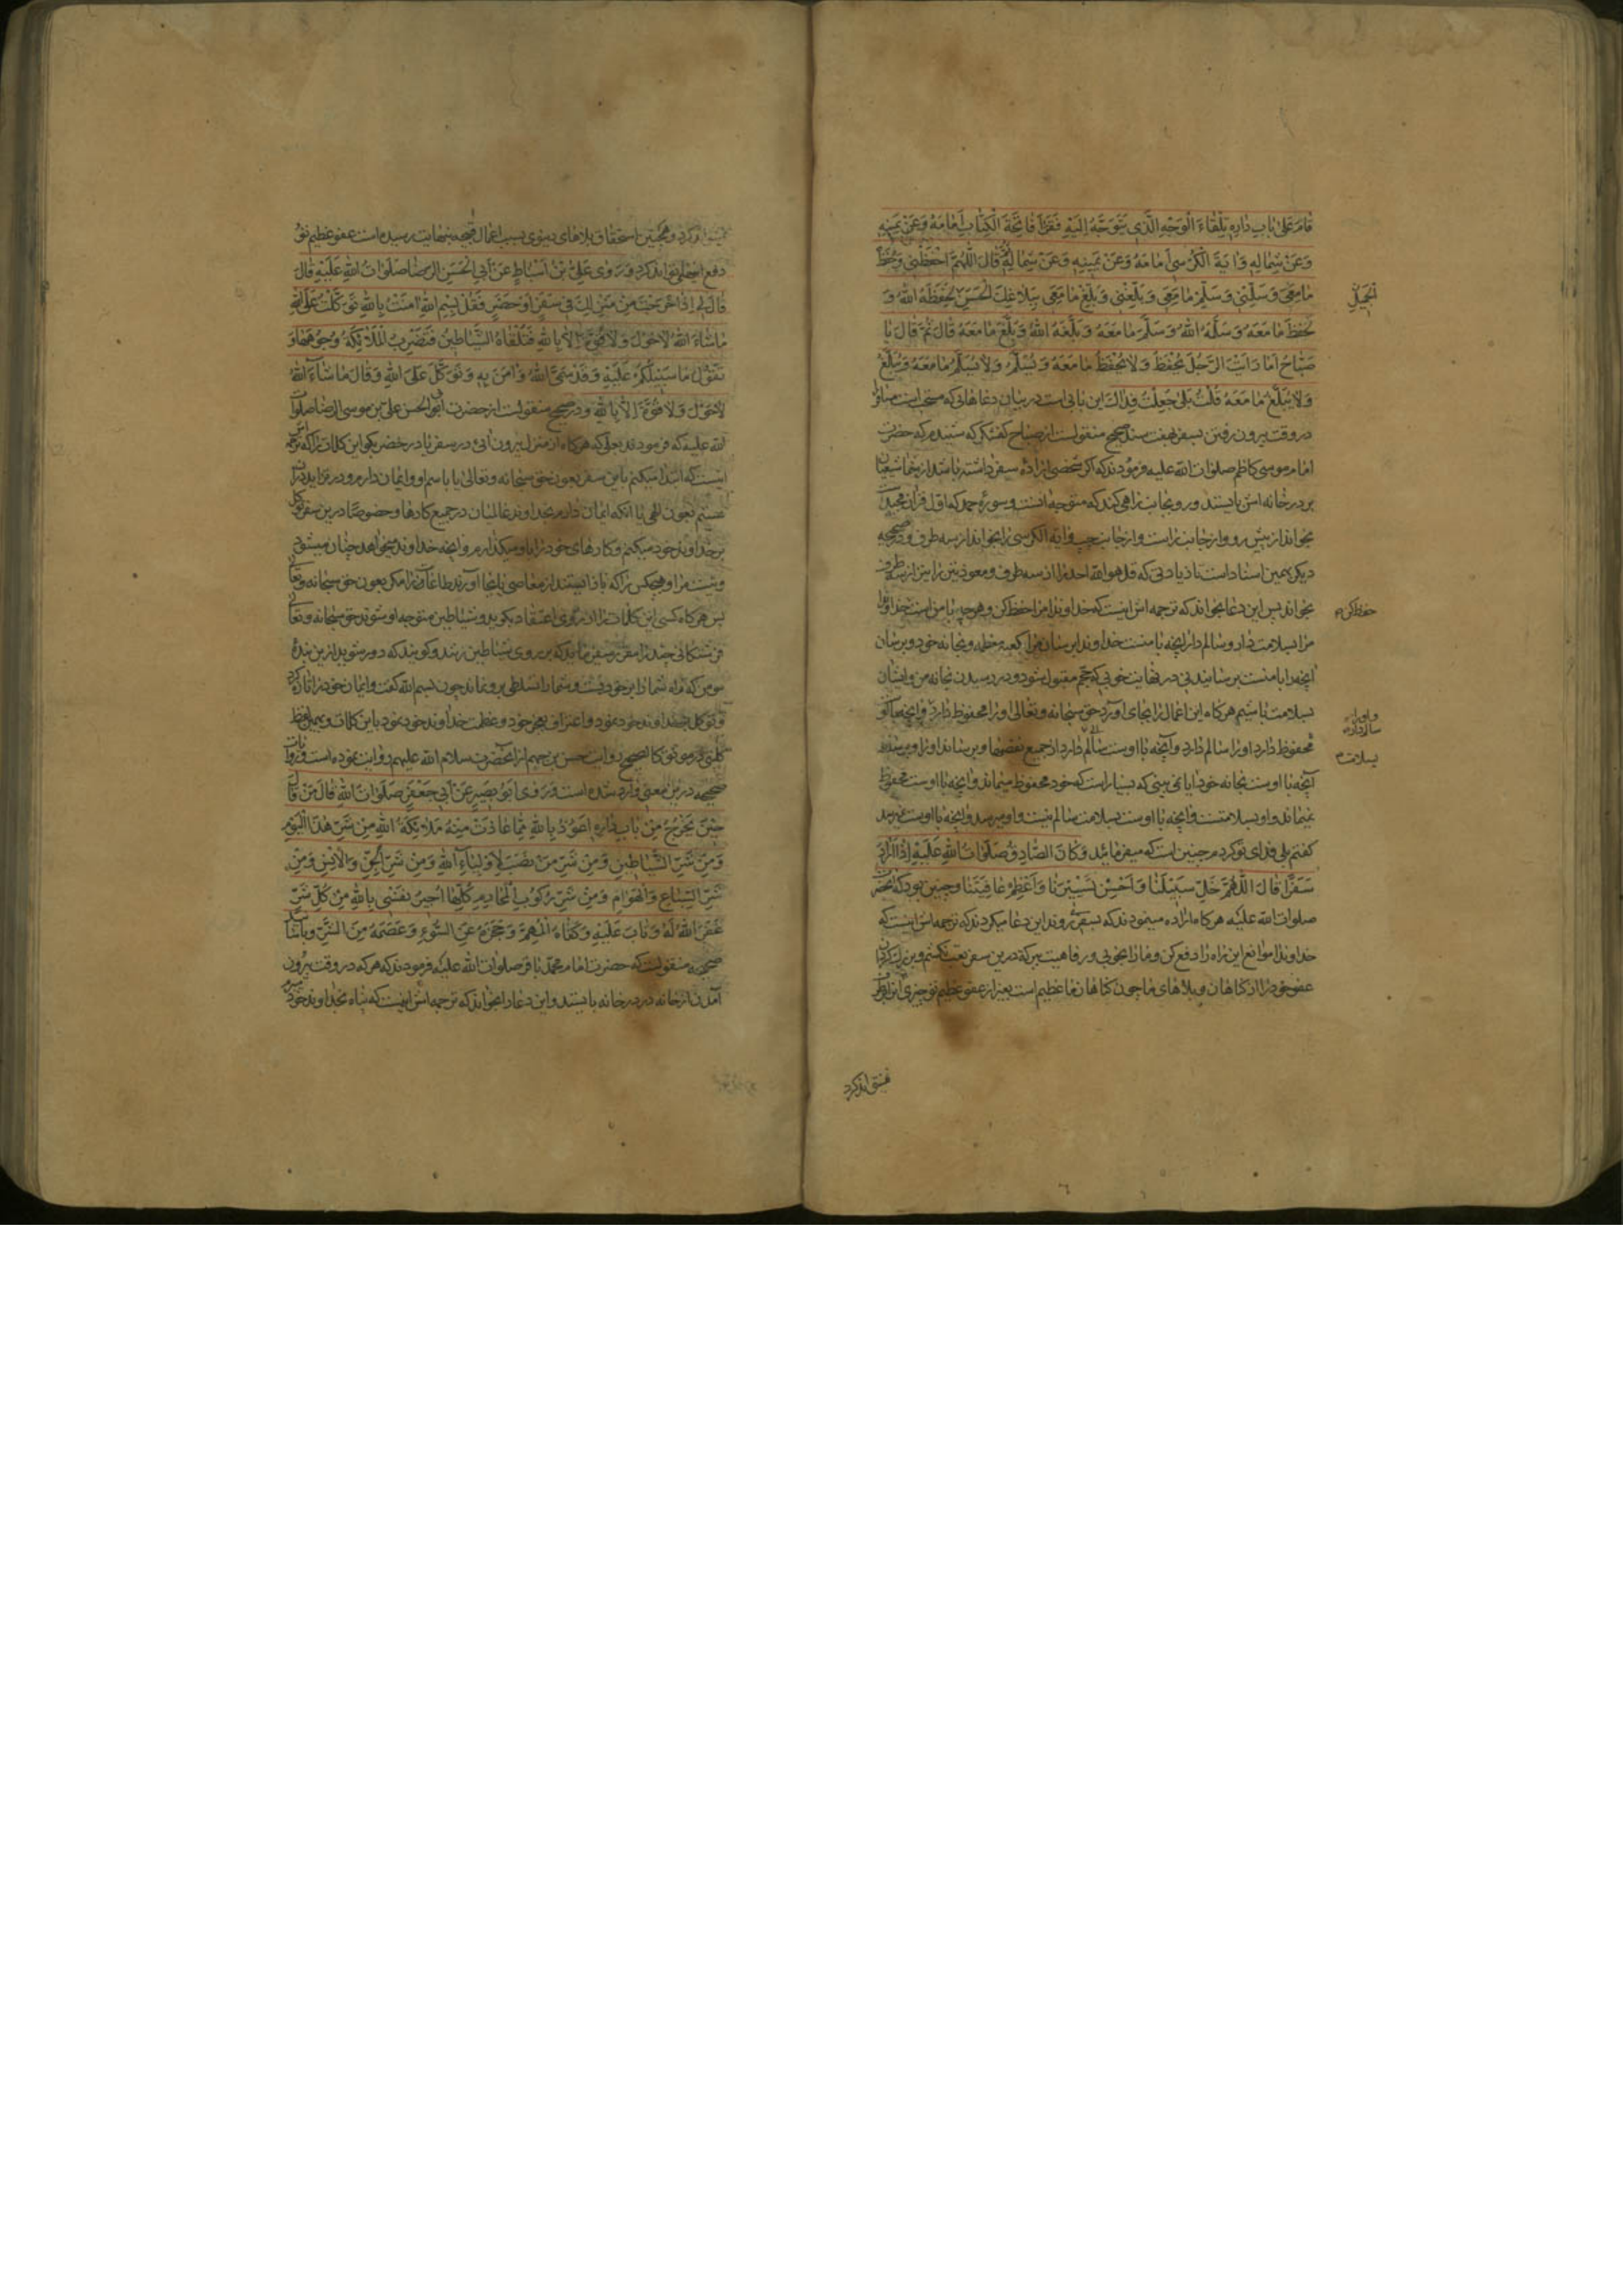 قَامَ عَلَى بَابِ دَارِهِ تِلْقَاءَ الْوَجْهِ الَّذِي يَتَوَجَّهُ إِلَيْهِ فَقَرَأَ فَاتِحَةَ الْكِتَابِ أَمَامَهُ وَعَنْ يَمِينِهِ
وَعَنْ شِمَالِهِ وَآيَةَ الْكُرْسِيِّ أَمَامَهُ وَعَنْ يَمِينِهِ وَعَنْ شِمَالِهِ ثُمَّ قَالَ اللّٰهُمَّ احْفَظْنِي وَاحْفَظْ
مَا مَعِيَ وَسَلِّمْنِي وَسَلِّمْ مَا مَعِيَ وَبَلِّغْنِي وَبَلِّغْ مَا مَعِيَ بِبَلَاغِكَ الْحَسَنِ لَحَفِظَهُ اللّٰهُ وَ
الْجَمِيلِ
حَفِظَ مَا مَعَهُ وَسَلَّمَهُ اللّٰهُ وَسَلَّمَ مَا مَعَهُ وَبَلَّغَهُ اللّٰهُ وَبَلَّغَ مَا مَعَهُ قَالَ ثُمَّ قَالَ يَا
صَبَّاحُ أَمَا رَأَيْتَ الرَّجُلَ يُحْفَظُ وَلَا يُحْفَظُ مَا مَعَهُ وَيُسَلَّمُ وَلَا يُسَلَّمُ مَا مَعَهُ وَيُبَلَّغُ
وَلَا يُبَلَّغُ مَا مَعَهُ قُلْتُ بَلَى جُعِلْتُ فِدَاكَ این بابی است در بیان دعاهائی که مستحب است مسافر را
در وقت بیرون رفتن بسفر بهفت سند صحیح منقولست از صباح که گفت شنیدم که حضرت
امام موسی کاظم صلوات الله علیه فرمودند که اگر شخصی اراده سفر داشته باشد از شما شیعیان
بر در خانه اش بایستد و رو بجانب راهی کند که متوجه آنست و سوره حمد که اول قرآن مجید است
بخواند از پیش رو و از جانب راست و از جانب چپ و آیة الکرسی را بخواند از سه طرف و در صحیحه
دیگر بهمین اسناد است با زیادتی که قل هو الله احد را از سه طرف و معوذتین را نیز از سه طرف
بخواند پس این دعا بخواند که ترجمه اش اینست که خداوندا مرا حفظ کن و هر چه با من است خداوندا
حفظ کن
مرا بسلامت دار و سالم دار آنچه با منست خداوندا برسان مرا بکعبه معظمه و بخانه خود و برسان
آنچه را با منست برسانیدنی در نهایت خوبی که حجم مقبول شود و در رسیدن بخانه من و ایشان
بسلامت باشیم هر گاه این اعمال را بجای آورد حق سبحانه و تعالی او را محفوظ دارد و آنچه با او
محفوظ دارد او را سالم دارد و آنچه با اوست سالم دارد از جمیع نقصها و برساند او را و برساند
و او را سالم دارد
بسلامت
آنچه با اوست بخانه خود آیا نمی بینی که بسیار است که خود محفوظ میماند و آنچه با اوست محفوظ
نمیماند و او بسلامتست و آنچه با اوست بسلامت سالم نیست و او میرسد و آنچه با اوست نمیرسد
گفتم بلی فدای تو گردم چنین است که میفرمائید وَكَانَ الصَّادِقُ صَلَوَاتُ اللّٰهِ عَلَيْهِ إِذَا أَرَادَ
سَفَرًا قَالَ اللّٰهُمَّ خَلِّ سَبِيلَنَا وَأَحْسِنْ تَسْيِيرَنَا وَأَعْظِمْ عَافِيَتَنَا و چنین بود که آن حضرت
صلوات الله علیه هر گاه اراده مینمودند که بسفر روند این دعا میکردند که ترجمه اش اینست که
خداوندا موانع این راه را دفع کن و ما را بخوبی و رفاهیت ببر که درین سفر تعب نکشیم و بزرگ گردان
عفو خود را از گناهان و بلاهای ما چون گناهان ما عظیم است بغیر از عفو عظیم تو چیزی آن را دفع
نمیتواند کرد
نمیتواند کرد و همچنین استحقاق بلاهای دنیوی بسبب اعمال قبیحه بنهایت رسیده است عفو عظیم تو
دفع اینها میتواند کرد وَرَوَى عَلِيُّ بْنُ أَسْبَاطٍ عَنْ أَبِي الْحَسَنِ الرِّضَا صَلَوَاتُ اللّٰهِ عَلَيْهِ قَالَ
قَالَ لِي إِذَا خَرَجْتَ مِنْ مَنْزِلِكَ فِي سَفَرٍ أَوْ حَضَرٍ فَقُلْ بِسْمِ اللّٰهِ آمَنْتُ بِاللّٰهِ تَوَكَّلْتُ عَلَى اللّٰهِ
مَا شَاءَ اللّٰهُ لَا حَوْلَ وَلَا قُوَّةَ إِلَّا بِاللّٰهِ فَتَلْقَاهُ الشَّيَاطِينُ فَتَضْرِبُ الْمَلَائِكَةُ وُجُوهَهَا وَ
تَقُولُ مَا سَبِيلُكُمْ عَلَيْهِ وَقَدْ سَمَّى اللّٰهَ وَآمَنَ بِهِ وَتَوَكَّلَ عَلَى اللّٰهِ وَقَالَ مَا شَاءَ اللّٰهُ
لَا حَوْلَ وَلَا قُوَّةَ إِلَّا بِاللّٰهِ و در صحیح منقولست از حضرت ابی الحسن علی بن موسی الرضا صلوات
الله علیه که فرمودند بعلی که هر گاه از منزل بیرون آئی در سفر یا در حضر بگو این کلمات را که ترجمه اش
اینست که ابتدا میکنم باین سفر بعون حق سبحانه و تعالی یا باسم او و ایمان دارم و در
نیستم بعون الهی یا آنکه ایمان دارم بخداوند عالمیان در جمیع کارها و خصوصا درین سفر توکل
بر خداوند خود میکنم و کارهای خود را باو میگذارم و آنچه خداوند میخواهد چنان میشود
و نیست مرا و هیچکس را که باز ایستند از معاصی یا بجا آورند طاعات را مگر بعون حق سبحانه و تعالی
پس هر گاه کسی این کلمات را از روی اعتقاد بگوید و شیاطین متوجه او شوند حق سبحانه و تعالی
فرشتگانی چند را مقرر میفرماید که بر روی شیاطین زنند و گویند که دور شوید ازین بنده
مومن که راه شما را برخود بست و شما را تسلطی برو نماند چون بسم الله گفت و ایمان خود را تازه کرد
و توکل بخداوند خود نمود و اعتراف بعجز خود و عظمت خداوند خود نمود باین کلمات و همین لفظ
کلینی در موثق کالصحیح روایت حسن بن جهم از آنحضرت سلام الله علیهم روایت نموده است و روایات
صحیحه درین معنی وارد شده است وَرَوَى أَبُو بَصِيرٍ عَنْ أَبِي جَعْفَرٍ صَلَوَاتُ اللّٰهِ قَالَ مَنْ قَالَ
حِينَ يَخْرُجُ مِنْ بَابِ دَارِهِ أَعُوذُ بِاللّٰهِ مِمَّا عَاذَتْ مِنْهُ مَلَائِكَةُ اللّٰهِ مِنْ شَرِّ هٰذَا الْيَوْمِ
وَمِنْ شَرِّ الشَّيَاطِينِ وَمِنْ شَرِّ مَنْ نَصَبَ لِأَوْلِيَاءِ اللّٰهِ وَمِنْ شَرِّ الْجِنِّ وَالْإِنْسِ وَمِنْ
شَرِّ السِّبَاعِ وَالْهَوَامِّ وَمِنْ شَرِّ رُكُوبِ الْمَحَارِمِ كُلِّهَا أُجِيرُ نَفْسِي بِاللّٰهِ مِنْ كُلِّ شَرٍّ
غَفَرَ اللّٰهُ لَهُ وَتَابَ عَلَيْهِ وَكَفَاهُ الْمُهِمَّ وَحَجَزَهُ عَنِ السُّوءِ وَعَصَمَهُ مِنَ الشَّرِّ و باسانید
صحیحه منقولست که حضرت امام محمد باقر صلوات الله علیه فرمودند که هر که در وقت بیرون
آمدن از خانه در در خانه بایستد و این دعا را بخواند که ترجمه اش اینست که پناه بخداوند خود میبرم